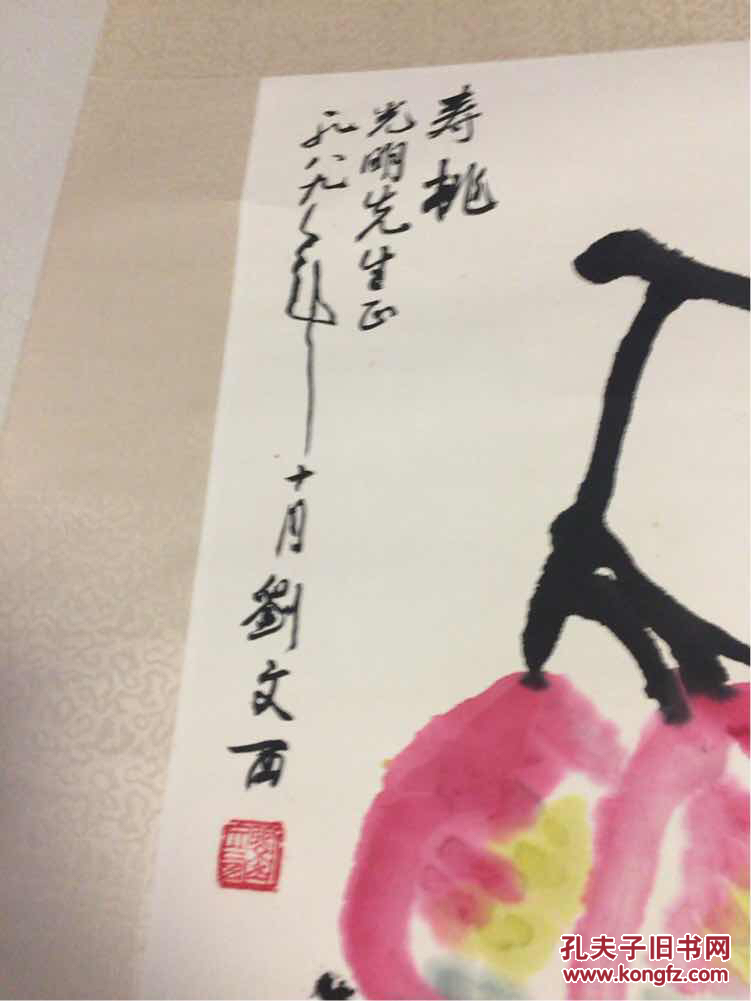 寿桃
光明先生正
一九八九年
十月劉文西
孔夫子旧书网
www.kongfz.com